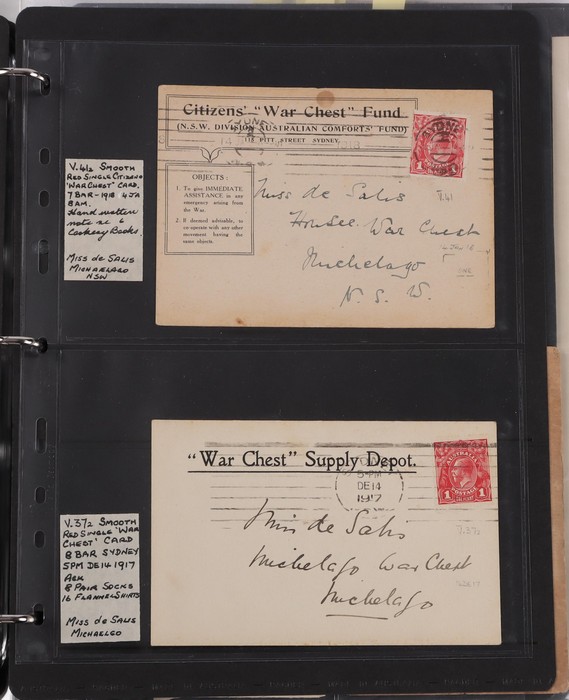 Citizens' "War Chest" Fund
(N.S.W. DIVISION AUSTRALIAN COMFORTS' FUND)
PITT STREET SYDNEY.
SYDNEY
SYDNEY
OBJECTS:
1. To give IMMEDIATE
ASSISTANCE in any
emergency arising from
the War.
2. If deemed advisable, to
co-operate with any other
movement having the
same objects.
1 1
V.41
Miss de Salis
Honsec War Chest
Michelago
N. S. W.
V.41/2 SMOOTH
RED SINGLE CITIZENS
'WAR CHEST' CARD.
7 BAR - 1918 4 JA
8AM.
Hand written
note re 6
Cookery Books.
MISS de SALIS
MICHAELAGO
NSW
"War Chest" Supply Depot.
5 PM
DE 14
1917
1 POSTAGE 1
Miss de Salis
Michelago War Chest
Michelago
V.37/2 SMOOTH
RED SINGLE 'WAR
CHEST' CARD
8 BAR SYDNEY
5PM DE 14 1917
ACK
8 PAIR SOCKS
16 FLANNEL SHIRTS
MISS de SALIS
MICHAELGO